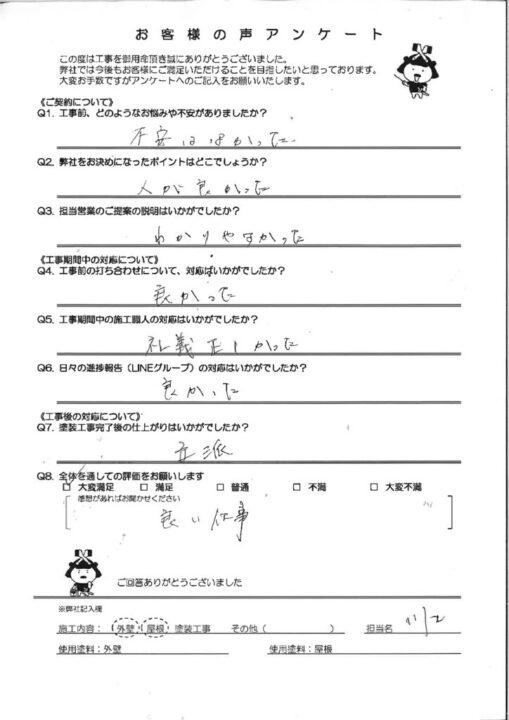 お客様の声アンケート
この度は工事を御用命頂き誠にありがとうございました。
弊社では今後もお客様にご満足いただけることを目指したいと思っております。
大変お手数ですがアンケートへのご記入をお願いいたします。
《ご契約について》
Q1. 工事前、どのようなお悩みや不安がありましたか?
不安はなかった
Q2. 弊社をお決めになったポイントはどこでしょうか?
人が良かった
Q3. 担当営業のご提案の説明はいかがでしたか?
わかりやすかった
《工事期間中の対応について》
Q4. 工事前の打ち合わせについて、対応はいかがでしたか?
良かった
Q5. 工事期間中の施工職人の対応はいかがでしたか?
礼義正しかった
Q6. 日々の進捗報告(LINEグループ)の対応はいかがでしたか?
良かった
《工事後の対応について》
Q7. 塗装工事完了後の仕上がりはいかがでしたか?
立派
Q8. 全体を通しての評価をお願いします
□ 大変満足 □ 満足 □ 普通 □ 不満 □ 大変不満
感想があればお聞かせください
良い仕事
ご回答ありがとうございました
※弊社記入欄
施工内容: 外壁 屋根 塗装工事 その他( ) 担当名
使用塗料:外壁 使用塗料:屋根